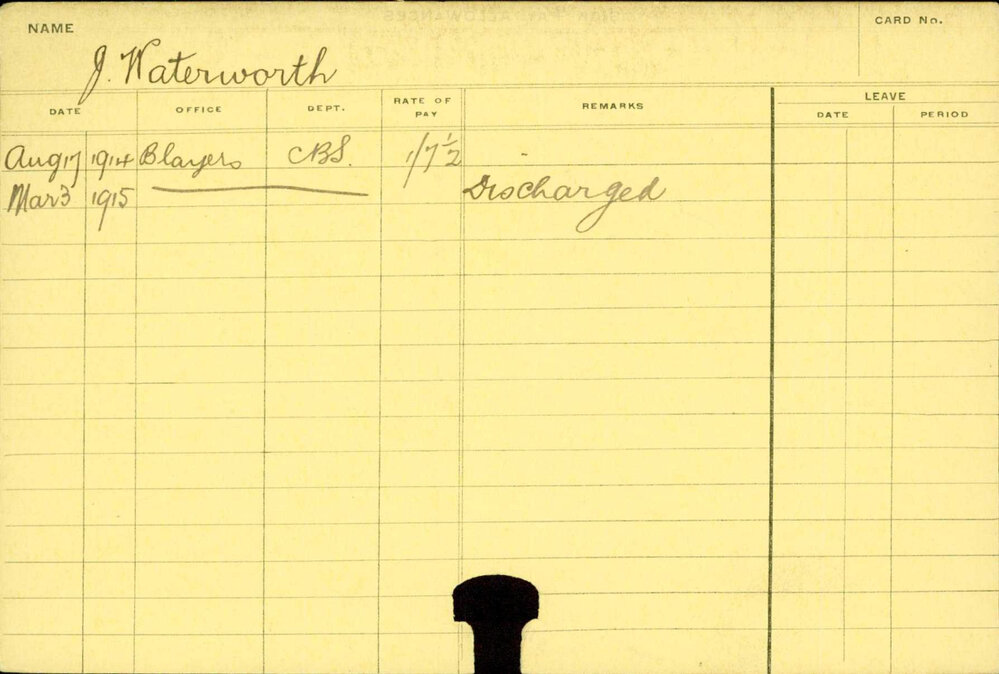 NAME
CARD No.
J. Waterworth
DATE OFFICE DEPT. RATE OF PAY REMARKS LEAVE
DATE PERIOD
Aug 17 1914 Blayers CBS. 1/7½
Mar 3 1915 Discharged